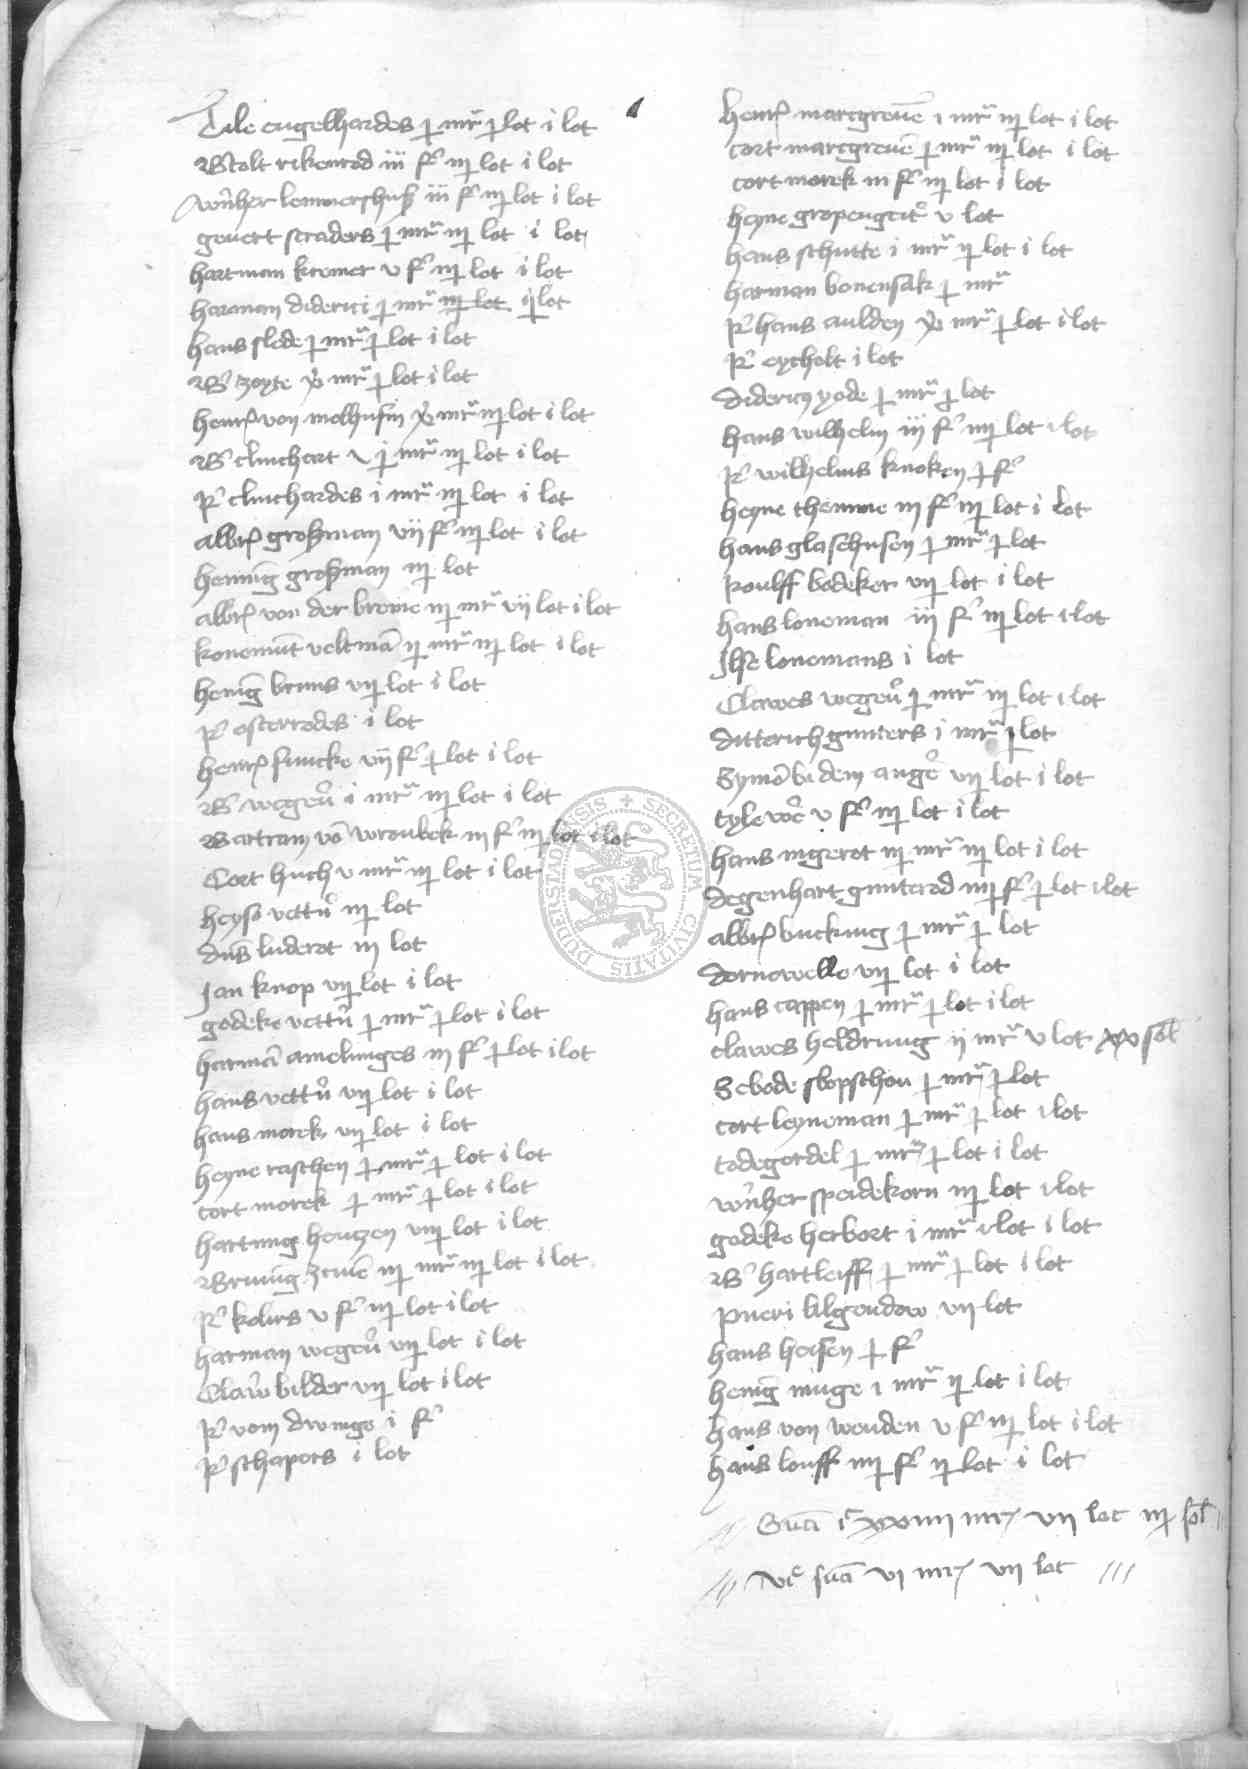 Tile engelhardes j mr j lot i lot
Btolt rikenrod iii f iij lot i lot
wernher lemmershuß iii f iij lot i lot
gevert scraders j mr iij lot i lot
hartman kremer v f iij lot i lot
harman diderici j mr iij lot ij lot
hans slede j mr j lot i lot
B zoyte mr j lot i lot
henr von molhusin mr iij lot i lot
B clinchart j mr iij lot i lot
p clinchardes i mr iij lot i lot
albr großman vii f iij lot i lot
henning großman iij lot
albr von der breme iij mr vii lot i lot
konemut veltman ij mr iij lot i lot
henig bruns vij lot i lot
p osterrodes i lot
henr funcke vii f j lot i lot
B wegen i mr iij lot i lot
Bartram vo wronbek iii f iij lot i lot
Cort huch v mr iij lot i lot
heyse vett iij lot
dns luderot iij lot
Jan knop vij lot i lot
godeke vett j mr j lot i lot
harman amelunges iij f j lot i lot
hans vett vij lot i lot
hans morek vij lot i lot
heyne raschen j mr j lot i lot
cort morek j mr j lot i lot
hartung hentzen viij lot i lot
Brunig iij mr iij lot i lot
p kolirs v f iij lot i lot
harman wegen vij lot i lot
Claw bilder vij lot i lot
p vom dwinge i f
p schapers i lot
henr marcgreve i mr iij lot i lot
cort marcgreve j mr iij lot i lot
cort morek iii f iij lot i lot
heyne gropengeit v lot
hans schutte i mr ij lot i lot
harman bonensak j mr
p hans aulden mr j lot i lot
p eycholt i lot
didericus yode j mr j lot
hans wilhelm iii f iiij lot i lot
p wilhelms knoken j f
heyne themme iij f iij lot i lot
hans glasehusen j mr j lot
Roulff bodeker vij lot i lot
hans loneman iij f iij lot i lot
Ilse lonemans i lot
Clawes wegen ij mr iij lot i lot
ditterich gunters i mr j lot
Symo bi dem ange vij lot i lot
tyle voc v f iij lot i lot
hans ingerot iij mr iij lot i lot
degenhart gunterod iiij f j lot i lot
albr bucking j mr j lot
dornewelle vij lot i lot
hans cappen j mr j lot i lot
clawes heldrung ij mr v lot xx sol
Sebode slopschou j mr j lot
cort leyneman j mr j lot i lot
todegordel j mr j lot i lot
wernher speidekorn iij lot i lot
godeke herbort i mr i lot i lot
B hartleiff j mr j lot i lot
Pueri bilgendow vii lot
hans heisen j f
henig inuge i mr ij lot i lot
hans von wenden v f iij lot i lot
hans louff iiij f ij lot i lot
Suma i c xxiiii mr vii lot iij sol
suma vi mr vii lot
DUDERSTADIENSIS + SECRETUM CIVITATIS